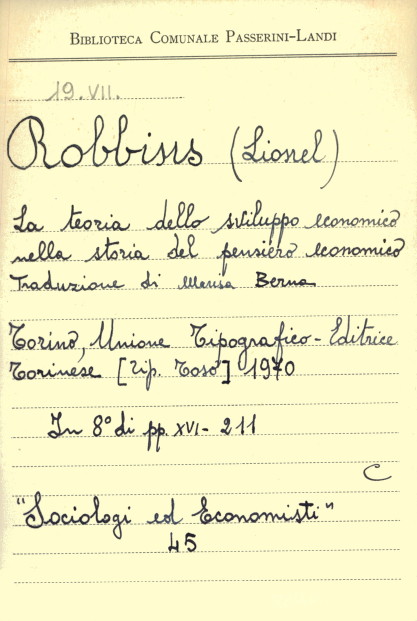 BIBLIOTECA COMUNALE PASSERINI-LANDI
19.VII.
Robbins (Lionel)
La teoria dello sviluppo economico
nella storia del pensiero economico
Traduzione di Marisa Berna
Torino, Unione Tipografico-Editrice
Torinese [Tip. Toso] 1970
In 8° di pp. XVI-211
C
"Sociologi ed Economisti"
45